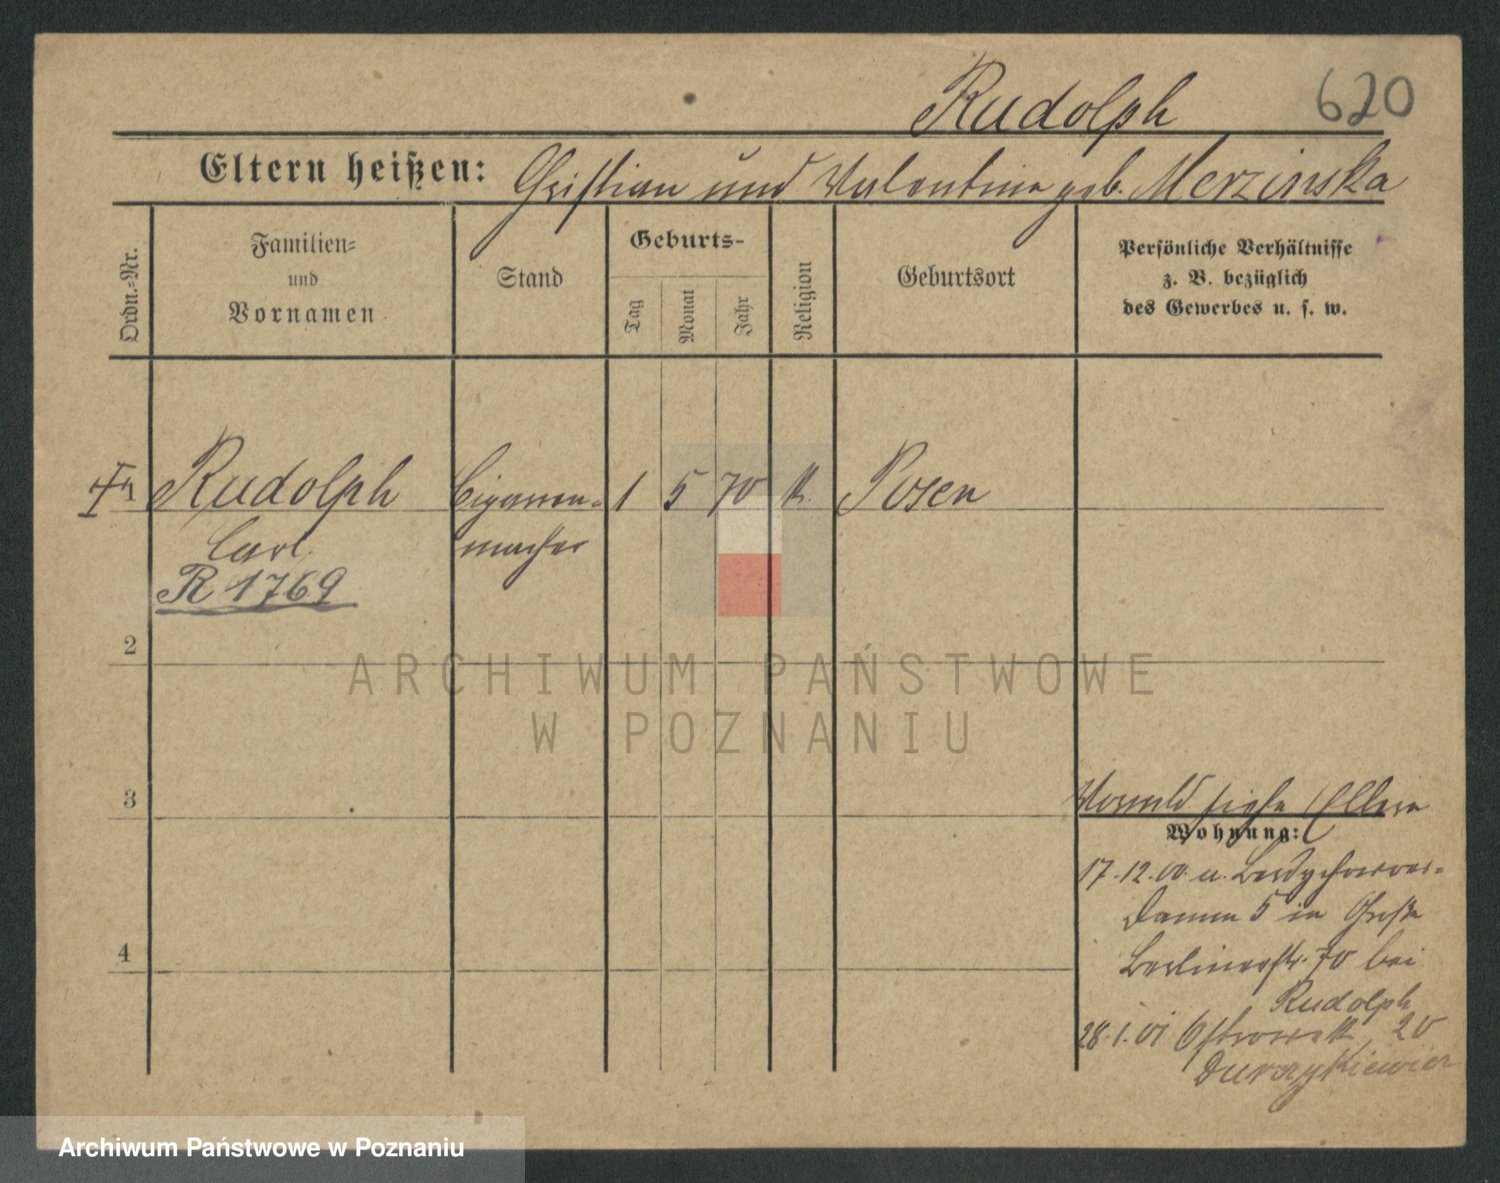 Rudolph
620
Eltern heißen: Christian und Valentina geb. Merzinska
Ordn.-Nr.
Familien-
und
Vornamen
Stand
Geburts-
Tag
Monat
Jahr
Religion
Geburtsort
Persönliche Verhältnisse
z. B. bezüglich
des Gewerbes u. s. w.
1 Rudolph Cigarren- 1 5 70 k. Posen
Carl macher
R 1769
2
3
4
siehe Eltern
Wohnung:
17.12.00. u. Berdychower-
Damm 5 in Große
Berlinerstr. 70 bei
Rudolph
28.1.01 Ostrowek 20
ARCHIWUM PAŃSTWOWE
W POZNANIU
Archiwum Państwowe w Poznaniu